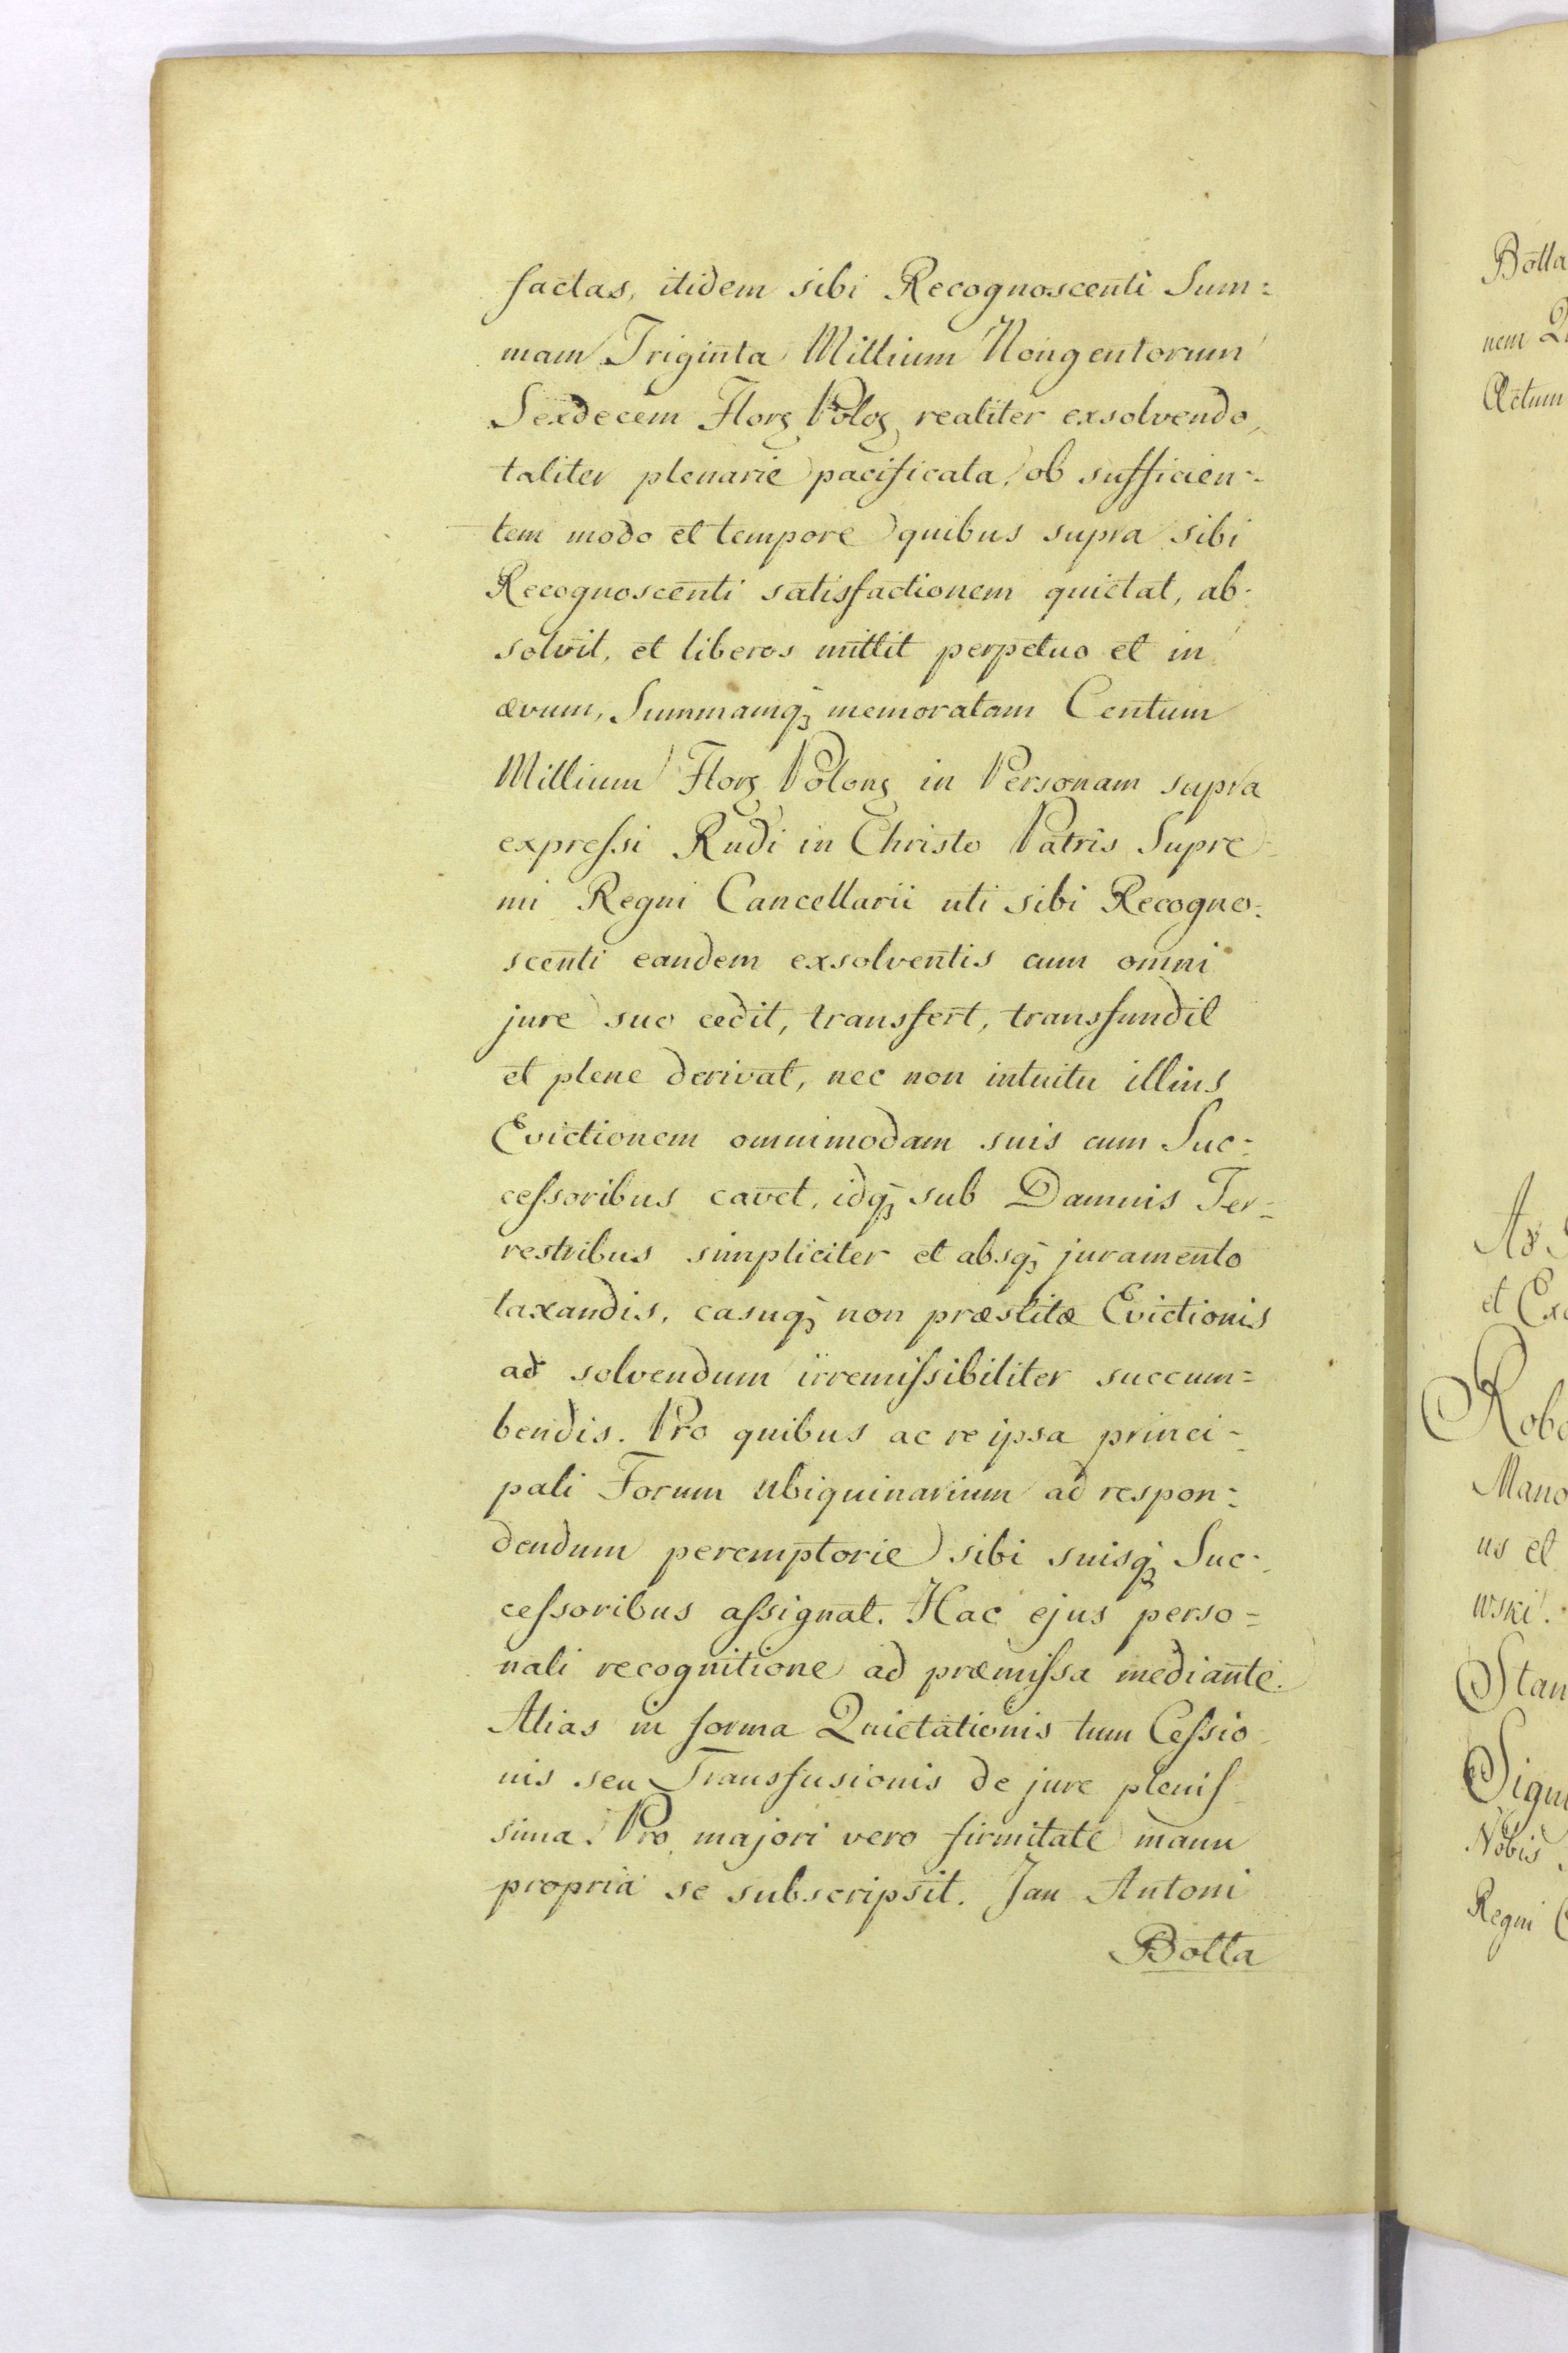 factas, itidem sibi Recognoscenti Sum=
mam Triginta Millium Nongentorum
Sexdecem Flor Polo realiter exsolvendo,
taliter plenarie pacificata, ob sufficien=
tem modo et tempore quibus supra sibi
Recognoscenti satisfactionem quietat, ab=
solvit, et liberos mittit perpetuo et in
ævum, Summamq; memoratam Centum
Millium Flor Polon in Personam supra
expressi Rndi in Christo Patris Supre=
mi Regni Cancellarii uti sibi Recogno=
scenti eandem exsolventis cum omni
jure suo cedit, transfert, transfundit
et plene derivat, nec non intuitu illius
Evictionem omnimodam suis cum Suc=
cessoribus cavet, idq; sub Damnis Ter=
restribus simpliciter et absq; juramento
taxandis, casuq; non præstitæ Evictionis
ad solvendum irremissibiliter succum=
bendis. Pro quibus ac re ipsa princi=
pali Forum ubiquinarium ad respon=
dendum peremptorie sibi suisq; Suc=
cessoribus assignat. Hac ejus perso=
nali recognitione ad præmissa mediante.
Alias in forma Quietationis tum Cessio=
nis seu Transfusionis de jure plenis=
sima. Pro majori vero firmitate manu
propria se subscripsit. Jan Antoni
Botta
Botta
nem
Actum
et
Mano
us et
wski.
Nobis
Regni